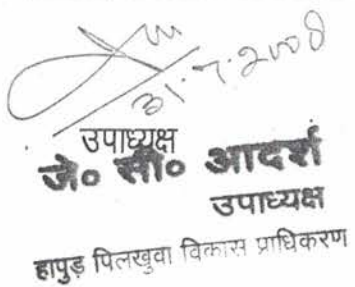 31.7.2008
उपाध्यक्ष
जे० सी० आदर्श
उपाध्यक्ष
हापुड़ पिलखुवा विकास प्राधिकरण